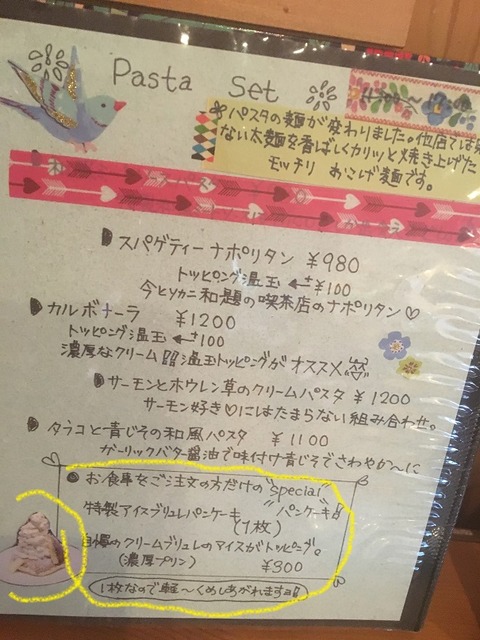 Pasta Set
パスタの麺が変わりました。他店では見
ない太麺を香ばしくカリッと焼き上げた
モッチリ おこげ麺です。
スパゲティーナポリタン ¥980
トッピング温玉 +¥100
今ドソカニ和題の喫茶店のナポリタン♡
カルボナーラ ¥1200
トッピング温玉 +100
濃厚なクリーム!!温玉トッピングがオススメ
サーモンとホウレン草のクリームパスタ ¥1200
サーモン好き♡にはたまらない組み合わせ。
タラコと青じその和風パスタ ¥1100
ガーリックバター醤油で味付け青じそでさわやか〜に
お食事をご注文の方だけの "special"
パンケーキ!!
特製アイスブリュレパンケーキ
(1枚)
自慢のクリームブリュレのアイスがトッピング。
(濃厚プリン) ¥300
1枚なので軽〜くめしあがれますョ!!